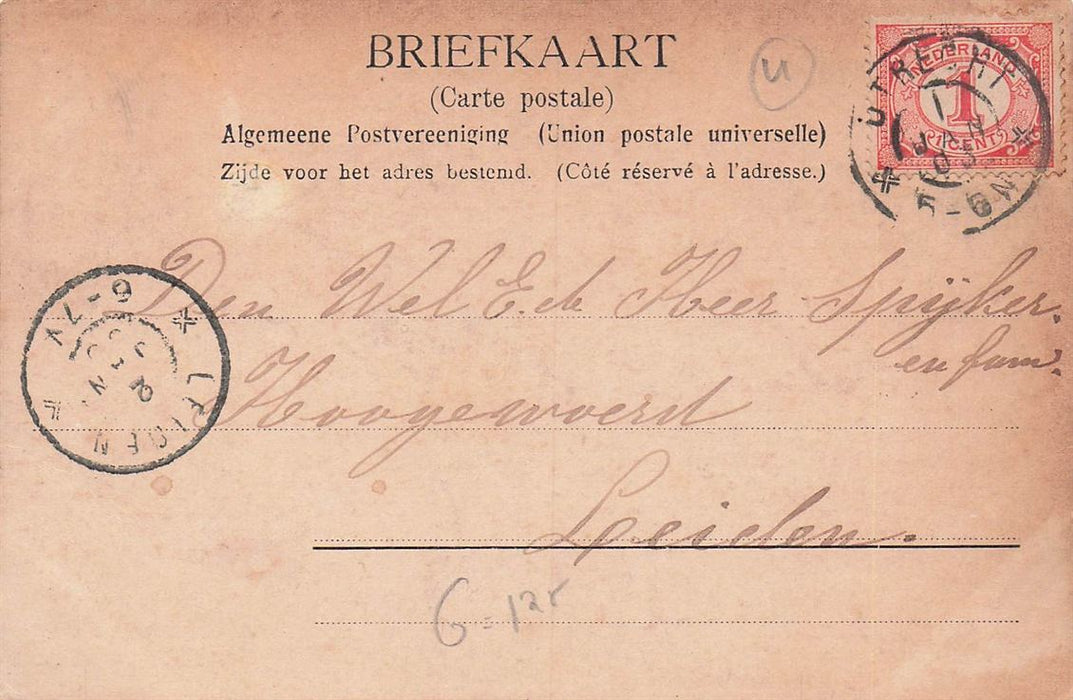 BRIEFKAART
(Carte postale)
Algemeene Postvereeniging (Union postale universelle)
Zijde voor het adres bestemd. (Côté réservé à l'adresse.)
U
NEDERLAND
1
CENT
UTRECHT
1 JAN 03
5-6N
Den Wel Ed. Heer Spijker.
en fam.
Hoogewoerd
Leiden.
LEIDEN
2 JAN
6-7V
G=12r